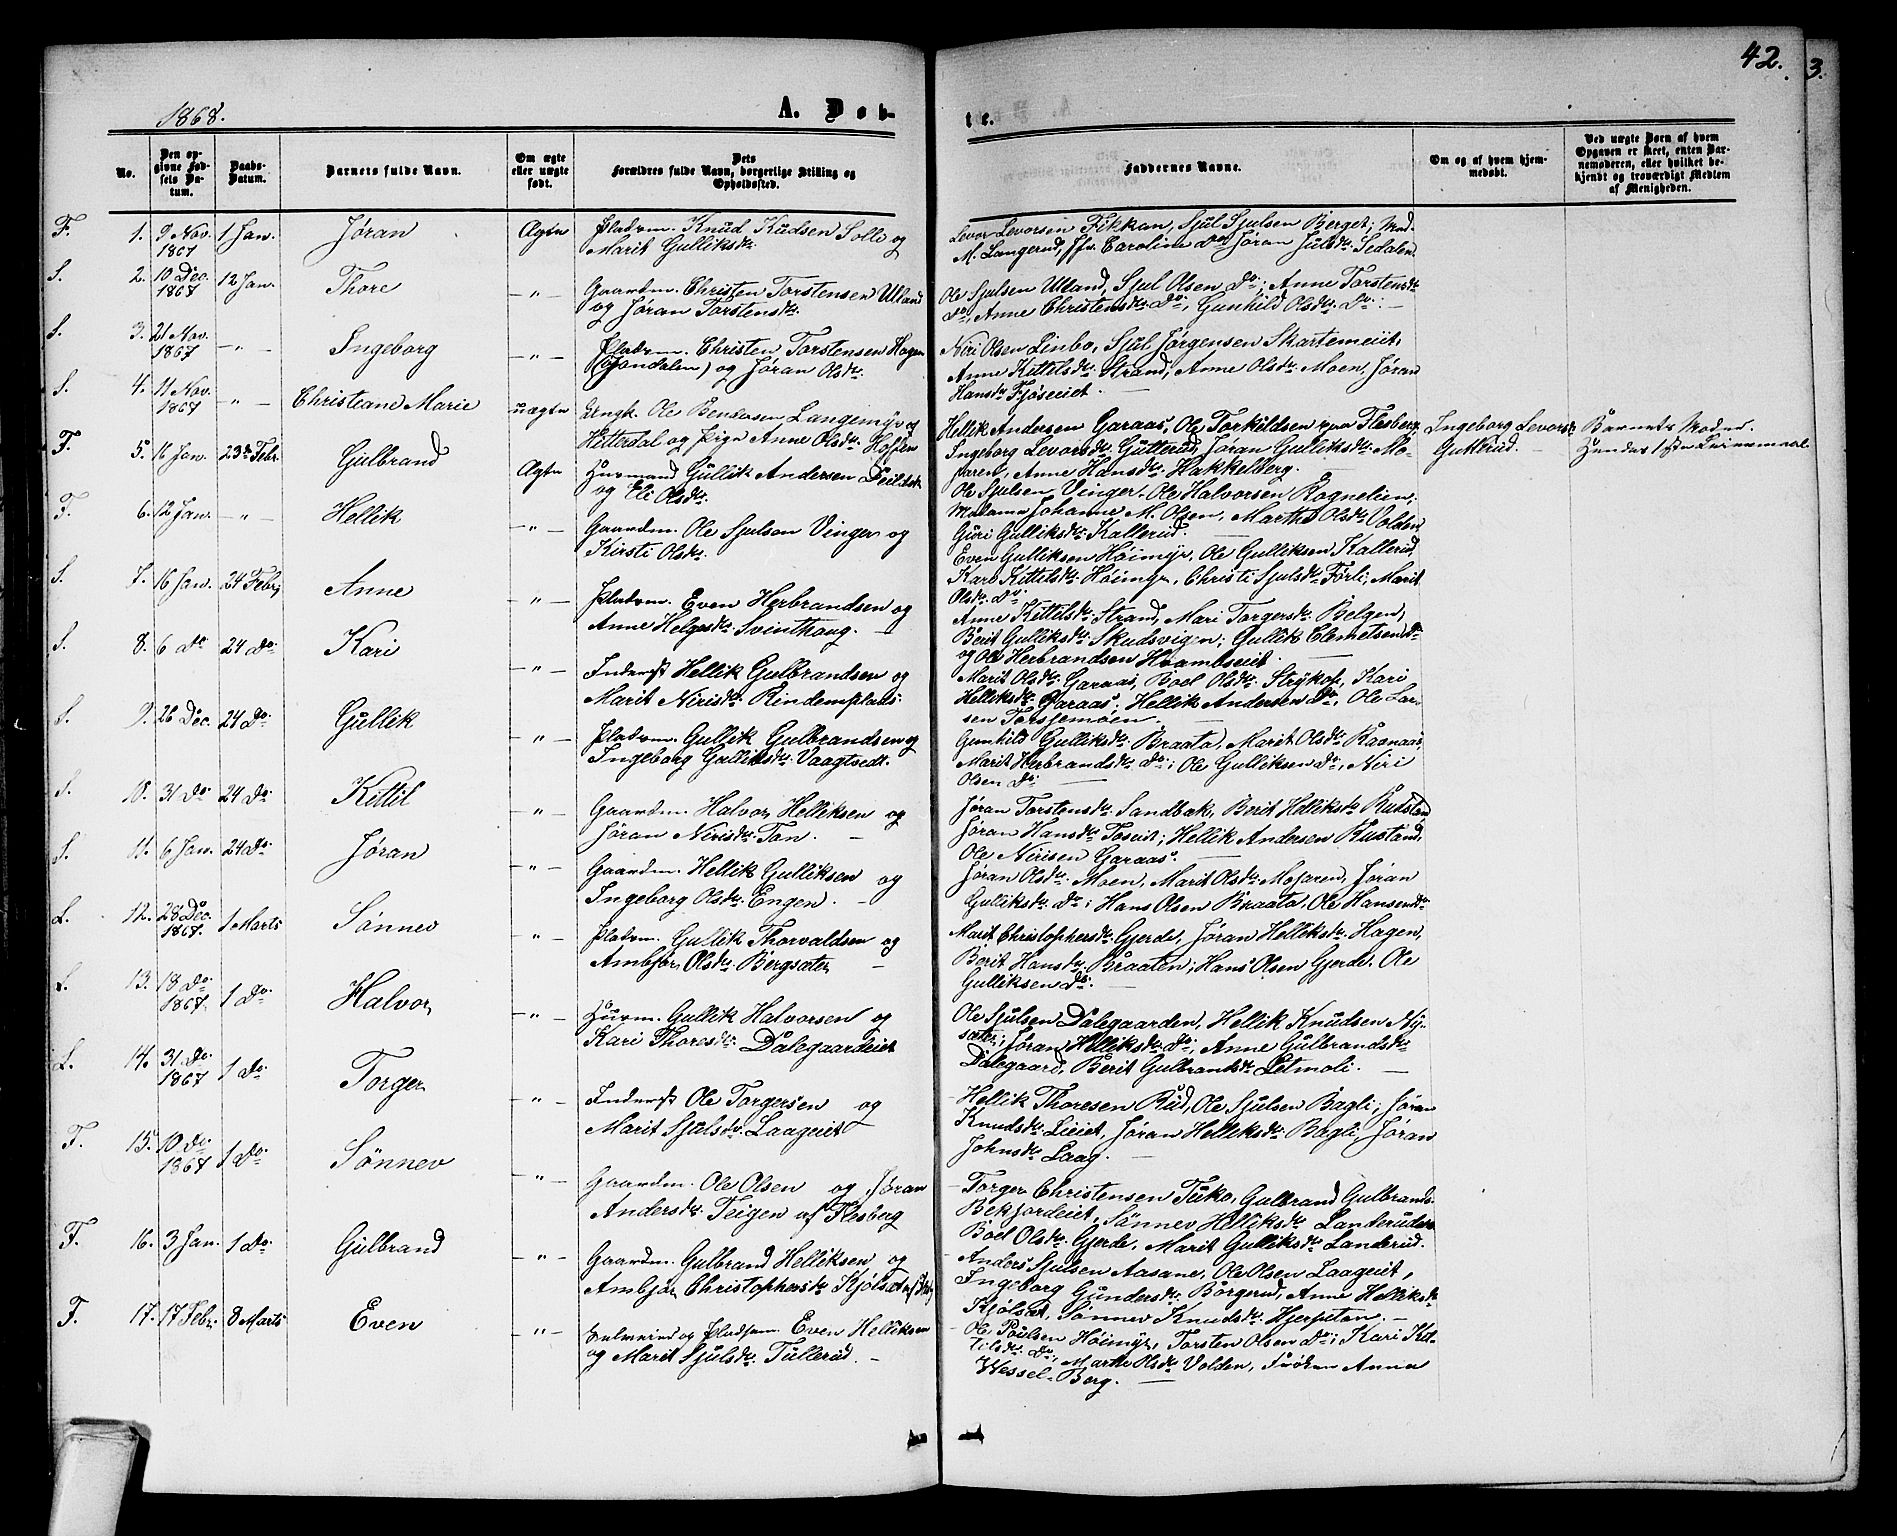 42.
3.
1868.
A. Døb-
te.
No.
Den opgivne Fødsels Datum.
Daabs-Datum.
Barnets fulde Navn.
Om ægte eller uægte født.
Dets Forældres fulde Navn, borgerlige Stilling og Opholdssted.
Faddernes Navne.
Om og af hvem hjemmedøbt.
Ved uægte Børn af hvem Opgaven er skeet, enten Barnemoderen, eller hvilket bekjendt og troværdigt Medlem af Menigheden.
F. 1. 9 Nov. 1867 1 Jan. Jøran Ægte Pladsm. Knud Kudsen Solli og
Marit Gulliksdr.
Levor Levorsen Fikkan, Sjul Sjulsen Berget; Mad.
M. Langerud, Carolina do Jøran Julsdr. Sedalen
S. 2. 10 Dec. 1867 12 Jan. Thore -"- Gaardm. Christen Torstensen Ulland
og Jøran Torstensdr.
Ole Sjulsen Ulland, Sjul Olsen do; Anne Torstensdr.
do, Anne Christensdr. do, Gunhild Olsdr. do. -
S. 3. 21 Nov. 1867 -"- Ingeborg -"- Pladsm. Christen Torstensen Hagen
(Jondalen) og Jøran Olsdr.
Niri Olsen Linbo, Sjul Jørgensen Skartemeiet,
Anne Kittilsdr. Strand, Anne Olsdr. Moen, Jøran
Hansdr. Fjøseiet -
S. 4. 11 Nov. 1867 -"- Christiane Marie uægte Ungk. Ole Bendosen Langemyr,
Hitterdal og Pige Anne Olsdr. Hoffen
Hellik Andersen Garaas, Ole Torkildsen Flesberg
Ingeborg Levorsdr. Gutterud, Jøran Gulliksdr. Mo-
garen, Anne Hansdr. Hakkelberg.
Ingeborg Levorsdr.
Gutterud. -
Barnets Moder.
Hendes 1ste Leiermaal
F. 5. 16 Jan. 23de Febr. Gulbrand Ægte Huusmand Gullik Andersen
og Eli Olsdr.
Ole Sjulsen Vinger, Ole Halvorsen Rognelien,
F. 6. 12 Jan. -"- Hellik -"- Gaardm. Ole Sjulsen Vinger og
Kirsti Olsdr.
Madame Johanne M. Olsen, Marthe Olsdr. Volden,
Guri Gulliksdr. Kallerud.
S. 7. 16 Jan. 24 Febr. Anne -"- Pladsm. Even Herbrandsen og
Anne Helgesdr. Svinthaug. -
Even Gulliksen Høimyr, Ole Gulliksen Kallerud,
Kari Kittelsdr. Høimyr, Christi Sjulsdr. Førli, Marit
Olsdr. do.
S. 8. 6 do 24 do. Kari -"- Inderst Hellik Gulbrandsen og
Marit Nirisdr. Rindemplads.
Anne Kittelsdr. Strand, Mari Torgersdr. Belgen,
Berit Gulliksdr. Skudsvigen; Gullik Clemetsen do
og Ole Herbrandsen Hvambseiet.
S. 9. 26 Dec. 24 do. Gullik -"- Pladsm. Gullik Gulbrandsen og
Ingeborg Gulliksdr. Vaagtvedt.
Marit Olsdr. Garaas, Boel Olsdr. Strykop, Kari
Helliksdr. Garaas, Hellik Andersen do, Ole Lar-
sen Torstemoen. -
S. 10. 31 do 24 do. Kittil -"- Gaardm. Halvor Helliksen og
Jøran Nirisdr. Ton. -
Gunhild Gulliksdr. Braata, Marit Olsdr. Raanaas,
Marit Herbrandsdr. do; Ole Gulliksen do, Niri
Olsen do. -
S. 11. 6 Jan. 24 do. Jøran -"- Gaardm. Hellik Gulliksen og
Ingeborg Olsdr. Engen. -
Jøran Torstensdr. Sandbak, Berit Helliksdr. Rustad,
Jøran Hansdr. Toseiet; Hellik Andersen Rustand,
Ole Nirisen Garaas. -
L. 12. 28 Dec. 1867. 1 Marts Sønnev -"- Pladsm. Gullik Thorvaldsen og
Ambjør Olsdr. Bergsæter -
Jøran Olsdr. Moen, Marit Olsdr. Mogaren, Jøran
Gulliksdr. do; Hans Olsen Braata, Ole Hansen do
L. 13. 18 do. 1867. 1 do. Halvor -"- Huusm. Gullik Halvorsen og
Kari Thoresdr. Dalegaardeiet
Marit Christophersdr. Gjerde, Jøran Helliksdr. Hagen,
Berit Hansdr. Braaten; Hans Olsen Gjerde, Ole
Gulliksen do. -
L. 14. 31 do. 1867 1 do. Torger -"- Inderst Ole Torgersen og
Marit Sjulsdr. Laageiet
Ole Sjulsen Dalegaarden, Hellik Knudsen Ny-
sæter; Jøran Helliksdr. do; Anne Gulbrandsdr.
Dalegaard, Berit Gulbrandsdr. Letmoli. -
F. 15. 10 do. 1867 1 do. Sønnev -"- Gaardm. Ole Olsen og Jøran
Andersdr. Teigen af Flesberg
Hellik Thoresen Rud, Ole Sjulsen Bagli; Jøran
Knudsdr. Lieiet, Jøran Helliksdr. Bagli, Jøran
Johnsdr. Laag. -
F. 16. 3 Jan. 1 do. Gulbrand -"- Gaardm. Gulbrand Helliksen og
Ambjør Christophersdr. Kjølsæt
Torger Christensen Tuko, Gulbrand Gulbrands.
Bekjordeiet, Sønnev Helliksdr. Landerud
Boel Olsdr. Gjerde, Marit Gulliksdr. Landerud.
F. 17. 17 Febr. 8 Marts Even -"- Selveier og Pladsm. Even Helliksen
og Marit Sjulsdr. Tullerud. -
Anders Sjulsen Aasane, Ole Olsen Laageiet,
Ingeborg Gundersdr. Børgerud, Anne Helliksdr.
Kjølsæt, Sønnev Knudsdr. Hjerpetan. -
Ole Poulsen Høimyr, Torsten Olsen do; Kari Kit-
tilsdr. do, Marthe Olsdr. Volden, Frøken Anna
Wessel-Berg. -